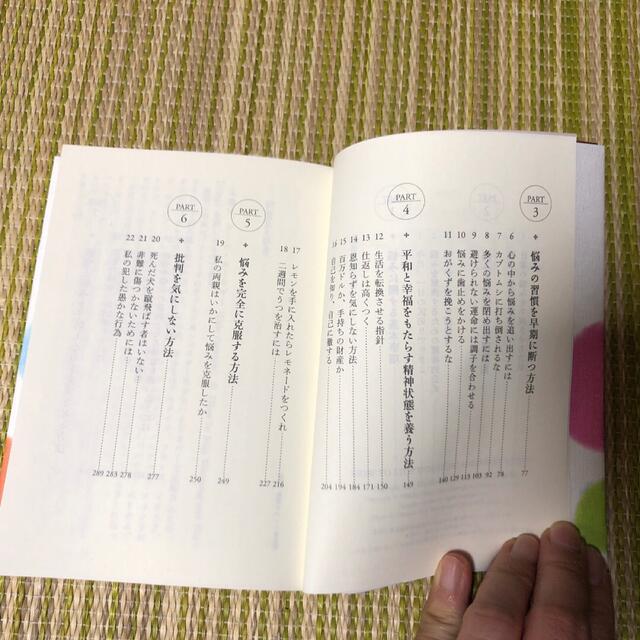 PART 3 ＊ 悩みの習慣を早期に断つ方法 77
6 心の中から悩みを追い出すには 78
7 カブトムシに打ち倒されるな 92
8 多くの悩みを閉め出すには 103
9 避けられない運命には調子を合わせる 113
10 悩みに歯止めをかける 129
11 おがくずを挽こうとするな 140
PART 4 ＊ 平和と幸福をもたらす精神状態を養う方法 149
12 生活を転換させる指針 150
13 仕返しは高くつく 171
14 恩知らずを気にしない方法 184
15 百万ドルか、手持ちの財産か 194
16 自己を知り、自己に徹する 204
17 レモンを手に入れたらレモネードをつくれ 216
18 二週間でうつを治すには 227
PART 5 ＊ 悩みを完全に克服する方法 249
19 私の両親はいかにして悩みを克服したか 250
PART 6 ＊ 批判を気にしない方法 277
20 死んだ犬を蹴飛ばす者はいない 278
21 非難に傷つかないためには 283
22 私の犯した愚かな行為 289